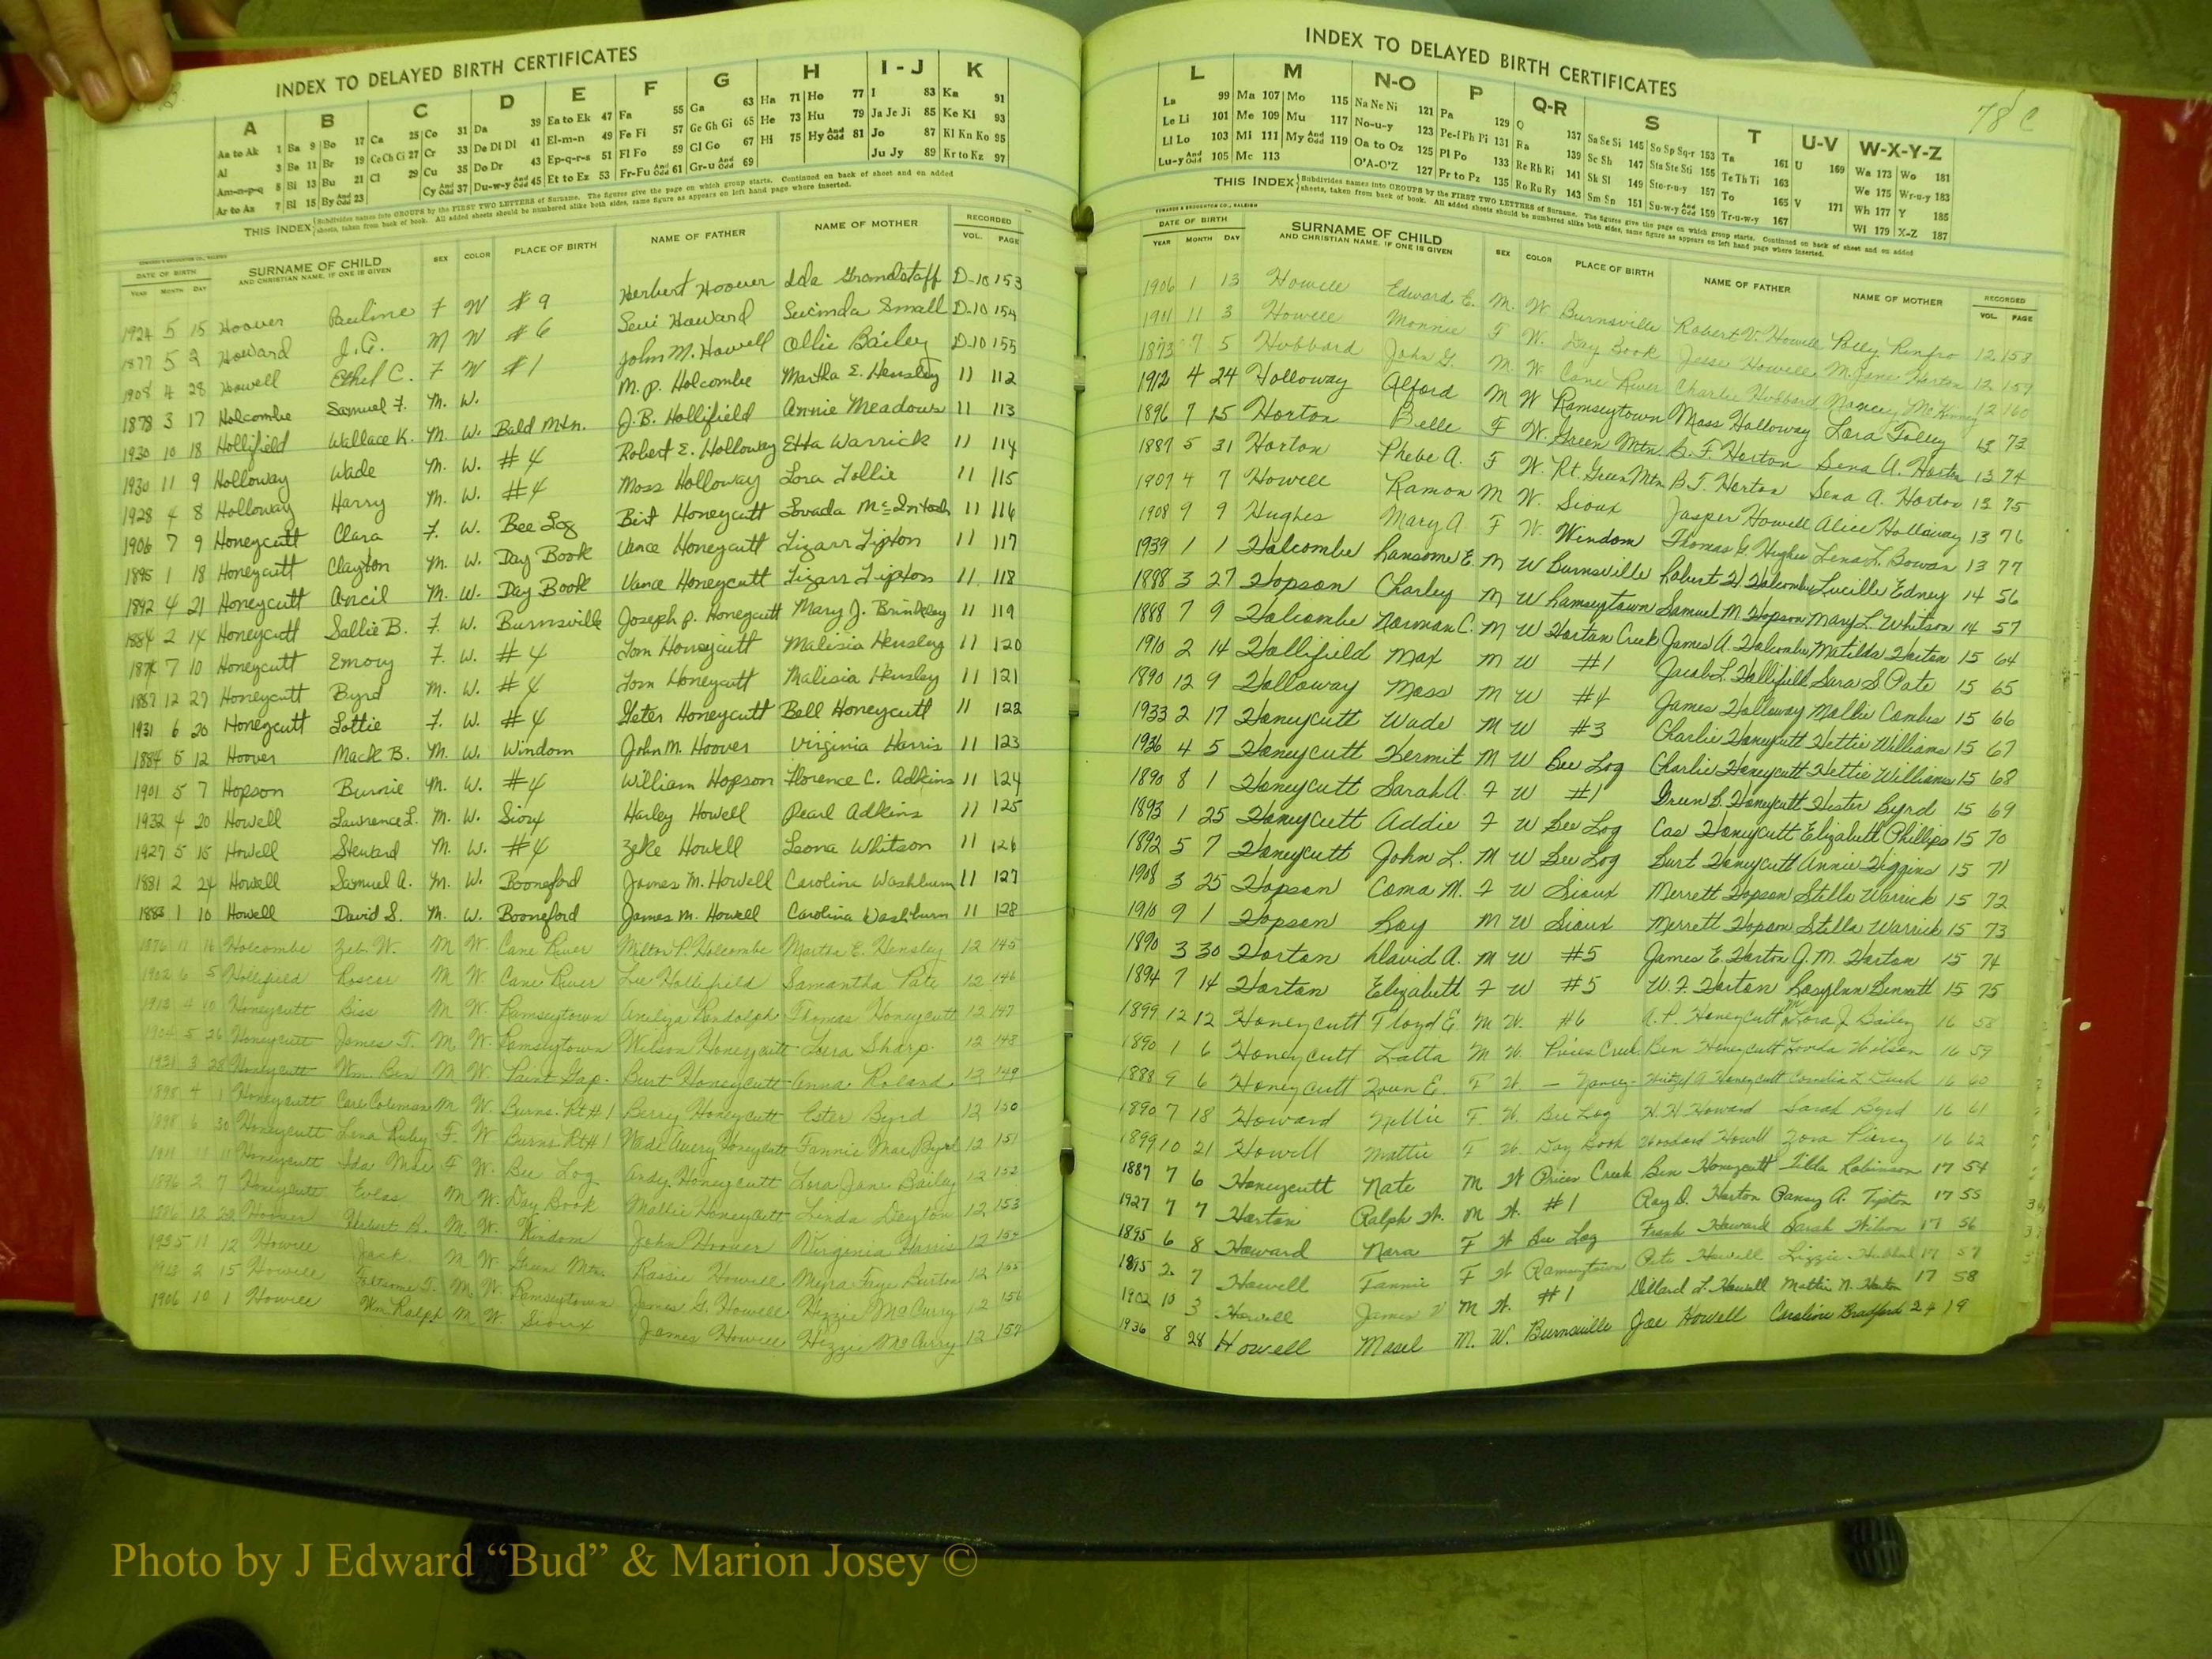 INDEX TO DELAYED BIRTH CERTIFICATES
A B C D E F G H I - J K
Aa to Ak 1 Ba 9 Bo 17 Ca 25 Co 31 Da 39 Ea to Ek 47 Fa 55 Ga 63 Ha 71 Ho 77 I 83 Ka 91
Al 3 Be 11 Br 19 Ce Ch Ci 27 Cr 33 De Di Dl 41 El-m-n 49 Fe Fi 57 Ge Gh Gi 65 He 73 Hu 79 Ja Je Ji 85 Ke Ki 93
Am-n-p-q 5 Bi 13 Bu 21 Cl 29 Cu 35 Do Dr 43 Ep-q-r-s 51 Fl Fo 59 Gl Go 67 Hi 75 Hy And Odd 81 Jo 87 Kl Kn Ko 95
Ar to Az 7 Bl 15 By And Odd 23 Cy And Odd 37 Du-w-y And Odd 45 Et to Ez 53 Fr-Fu And Odd 61 Gr-u And Odd 69 Ju Jy 89 Kr to Kz 97
THIS INDEX Subdivides names into GROUPS by the FIRST TWO LETTERS of Surname. The figures give the page on which group starts. Continued on back of sheet and on added
sheets, taken from back of book. All added sheets should be numbered alike both sides, same figure as appears on left hand page where inserted.
DATE OF BIRTH SURNAME OF CHILD SEX COLOR PLACE OF BIRTH NAME OF FATHER NAME OF MOTHER RECORDED
YEAR MONTH DAY AND CHRISTIAN NAME, IF ONE IS GIVEN VOL. PAGE
1924 5 15 Hoover Pauline F W #9 Herbert Hoover Ida Grandstaff D-10 153
1877 5 2 Howard J.C. M W #6 Levi Howard Lucinda Small D-10 154
1908 4 28 Howell Ethel C. F W #1 John M. Howell Ollie Bailey D-10 155
1878 3 17 Holcombe Samuel F. M. W. M.P. Holcombe Martha E. Hensley 11 112
1930 10 18 Hollifield Wallace K. M. W. Bald Mtn. J.B. Hollifield Annie Meadows 11 113
1930 11 9 Holloway Wade M. W. #4 Robert E. Holloway Etta Warrick 11 114
1928 4 8 Holloway Harry M. W. #4 Moss Holloway Lora Tollie 11 115
1906 7 9 Honeycutt Clara F. W. Bee Log Birt Honeycutt Lovada McIntosh 11 116
1895 1 18 Honeycutt Clayton M. W. Day Book Vance Honeycutt Lizarr Lipton 11 117
1892 4 21 Honeycutt Ancil M. W. Day Book Vance Honeycutt Lizarr Lipton 11 118
1884 2 14 Honeycutt Sallie B. F. W. Burnsville Joseph P. Honeycutt Mary J. Brinkley 11 119
1874 7 10 Honeycutt Emory F. W. #4 Tom Honeycutt Malisia Hensley 11 120
1887 12 27 Honeycutt Byrd M. W. #4 Tom Honeycutt Malisia Hensley 11 121
1931 6 20 Honeycutt Lottie F. W. #4 Geter Honeycutt Bell Honeycutt 11 122
1884 5 12 Hoover Mack B. M. W. Windom John M. Hoover Virginia Harris 11 123
1901 5 7 Hopson Burnie M. W. #4 William Hopson Florence C. Adkins 11 124
1932 4 20 Howell Lawrence L. M. W. Sioux Harley Howell Pearl Adkins 11 125
1927 5 15 Howell Steward M. W. #4 Zeke Howell Leona Whitson 11 126
1881 2 24 Howell Samuel A. M. W. Booneford James M. Howell Caroline Washburn 11 127
1883 1 10 Howell David S. M. W. Booneford James M. Howell Carolina Washburn 11 128
1876 11 16 Holcombe Zeb W. M W. Cane River Milton P. Holcombe Martha E. Hensley 12 145
1902 6 5 Hollifield Roscoe M W. Cane River Lee Hollifield Samantha Pate 12 146
10 Honeycutt Biss M W. Ramseytown Randolph Thomas Honeycutt 12 147
1904 5 26 Honeycutt James T. M. W. Ramseytown Wilson Honeycutt Lora Sharp 12 148
1931 3 28 Honeycutt Wm. Ben M W. Paint Gap. Burt Honeycutt Anna Roland 12 149
1898 4 1 Honeycutt Carl Coleman M W. Burns. Rt #1 Berry Honeycutt Ester Byrd 12 150
1898 6 30 Honeycutt Lena Ruby F. W Burns Rt #1 Wade Avery Honeycutt Fannie Mae Byrd 12 151
11 Honeycutt Ida Mae F W. Bee Log Andy Honeycutt Lora Jane Bailey 12 152
1896 2 7 Honeycutt M W. Day Book Honeycutt Linda Deyton 12 153
1886 12 22 Hoover Hobert B. M. W. Windom John Hoover Virginia Harris 12 154
1935 11 12 Howell Jack M W Green Mtn. Rassie Howell Myra Faye Burton 12 155
2 15 Howell M. W. Ramseytown James G. Howell Hizzie McCurry 12 156
1906 10 1 Howell Wm Ralph M W Sioux James Howell Hizzie McCurry 12 157
INDEX TO DELAYED BIRTH CERTIFICATES
78 C
L M N-O P Q-R S T U-V W-X-Y-Z
La 99 Ma 107 Mo 115 Na Ne Ni 121 Pa 129 Q 137 Sa Se Si 145 So Sp Sq-r 153 Ta 161 U 169 Wa 173 Wo 181
Le Li 101 Me 109 Mu 117 No-u-y 123 Pe-f Ph Pi 131 Ra 139 Sc Sh 147 Sta Ste Sti 155 Te Th Ti 163 We 175 Wr-u-y 183
Ll Lo 103 Mi 111 My And Odd 119 Oa to Oz 125 Pl Po 133 Re Rh Ri 141 Sk Sl 149 Sto-r-u-y 157 To 165 V 171 Wh 177 Y 185
Lu-y And Odd 105 Mc 113 O'A-O'Z 127 Pr to Pz 135 Ro Ru Ry 143 Sm Sn 151 Su-w-y And Odd 159 Tr-u-w-y 167 Wi 179 X-Z 187
THIS INDEX Subdivides names into GROUPS by the FIRST TWO LETTERS of Surname. The figures give the page on which group starts. Continued on back of sheet and on added
sheets, taken from back of book. All added sheets should be numbered alike both sides, same figure as appears on left hand page where inserted.
EDWARDS & BROUGHTON CO., RALEIGH
DATE OF BIRTH SURNAME OF CHILD SEX COLOR PLACE OF BIRTH NAME OF FATHER NAME OF MOTHER RECORDED
YEAR MONTH DAY AND CHRISTIAN NAME, IF ONE IS GIVEN VOL. PAGE
1906 1 13 Howell Edward E. M. W. Burnsville Robert V. Howell Polly Renfro 12 158
1911 11 3 Howell Monnie F W. Day Book Jesse Howell M. Jane Horton 12 159
1873 7 5 Hubbard John G. M. W. Cane River Charlie Hubbard Nancy McKinney 12 160
1912 4 24 Holloway Alford M W Ramseytown Moss Holloway Lora Tolley 13 73
1896 7 15 Horton Belle F W. Green Mtn B.F. Horton Sena A. Horton 13 74
1887 5 31 Horton Phebe A. F W. Rt. Green Mtn B.F. Horton Sena A. Horton 13 75
1907 4 7 Howell Ramon M W. Sioux Jasper Howell Alice Holloway 13 76
1908 9 9 Hughes Mary A. F W. Windom Thomas G. Hughes Lena L. Bowan 13 77
1939 1 1 Holcombe Ransome E. M W Burnsville Robert H. Holcombe Lucille Edney 14 56
1888 3 27 Hopson Charley M W Ramseytown Samuel M. Hopson Mary L. Whitson 14 57
1888 7 9 Holcombe Norman C. M W Horton Creek James A. Holcombe Matilda Horton 15 64
1910 2 14 Hollifield Max M W #1 Jacob L. Hollifield Sara S. Pate 15 65
1890 12 9 Holloway Moss M W #4 James Holloway Mollie Combes 15 66
1933 2 17 Honeycutt Wade M W #3 Charlie Honeycutt Hettie Williams 15 67
1936 4 5 Honeycutt Kermit M W Bee Log Charlie Honeycutt Hettie Williams 15 68
1890 8 1 Honeycutt Sarah A. F W #1 Green B. Honeycutt Hester Byrd 15 69
1893 1 25 Honeycutt Addie F W Bee Log Cas Honeycutt Elizabeth Phillips 15 70
1892 5 7 Honeycutt John L. M W Bee Log Burt Honeycutt Annie Higgins 15 71
1908 3 25 Hopson Coma M. F W Sioux Merrett Hopson Stella Warrick 15 72
1910 9 1 Hopson Roy M W Sioux Merrett Hopson Stella Warrick 15 73
1890 3 30 Horton David A. M W #5 James E. Horton J.M. Horton 15 74
1894 7 14 Horton Elizabeth F W #5 W.F. Horton Rosylnn Bennett 15 75
1899 12 12 Honeycutt Floyd E. M W. #6 A.P. Honeycutt Lora J. Bailey 16 58
1890 1 6 Honeycutt Latta M W. Prices Creek Ben Honeycutt Wilson 16 59
1888 9 6 Honeycutt Zoun E. F W - Yancey - A. Honeycutt Cornelia L. Bush 16 60
1890 7 18 Howard Nellie F W. Bee Log H.H. Howard Sarah Byrd 16 61
1899 10 21 Howell Mattie F W. Day Book Woodard Howell Zora Piercy 16 62
1887 7 6 Honeycutt Nate M W Prices Creek Ben Honeycutt Tilda Robinson 17 54
1927 7 7 Horton Ralph W. M W. #1 Ray D. Horton Pansy A. Tipton 17 55
1895 6 8 Howard Nora F W Bee Log Frank Howard Sarah Wilson 17 56
1895 2 7 Howell Fannie F W Ramseytown Pete Howell Lizzie Hubbard 17 57
1902 10 3 Howell James V M W. #1 Dillard L. Howell Mattie N. Horton 17 58
1936 8 28 Howell Masel M. W. Burnsville Joe Howell Caroline Bradford 24 19
Photo by J Edward “Bud” & Marion Josey ©